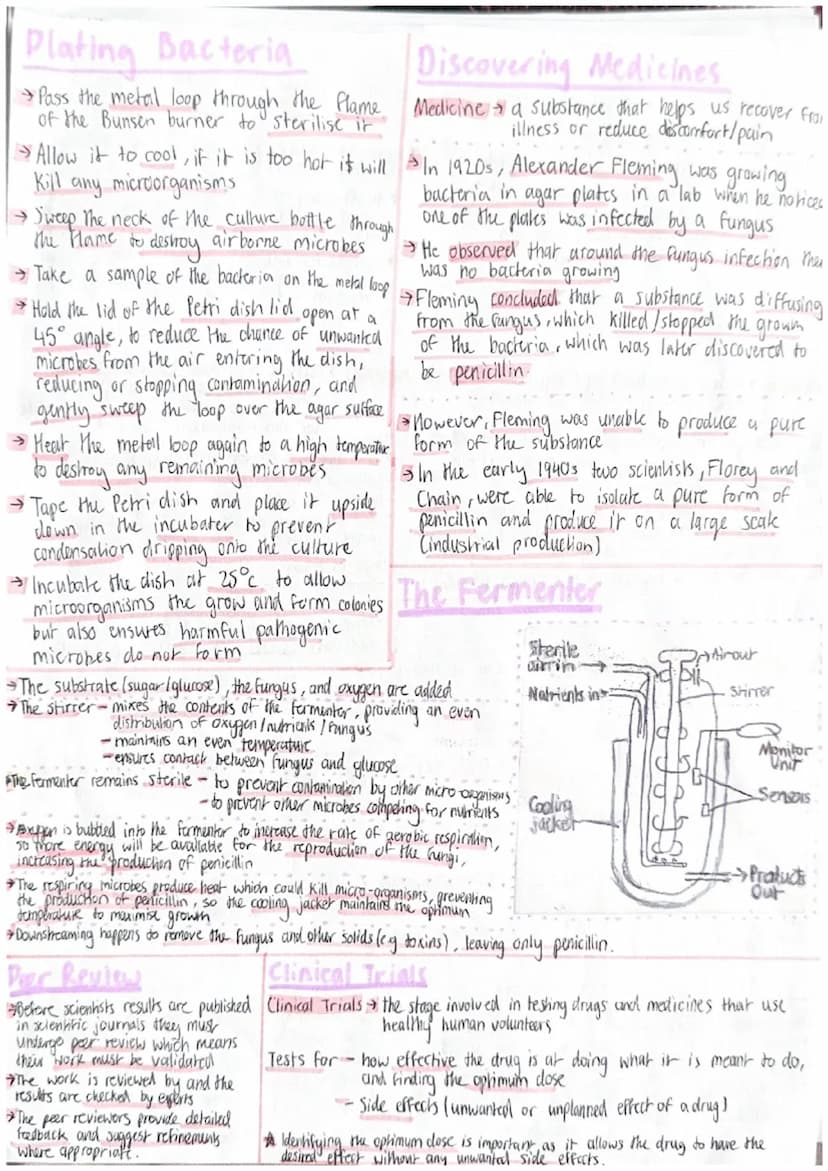 Plating Bacteria
→ Pass the metal loop through the flame
of the Bunsen burner to sterilise it
→ Allow it to cool, if it is too hot it will
kill any microorganisms
→ Sweep the neck of the culture bottle through
the flame to destroy airborne microbes
→ Take a sample of the bacteria on the metal loop
→ Hold the lid of the Petri dish lid open at a
45° angle, to reduce the chance of unwanted
microbes from the air entering the dish,
reducing or stopping contamination, and
gently sweep the loop over the agar surface
→ Heat the metall loop again to a high temperature
to destroy any remaining microbes
→ Tape the Petri dish and place it upside
down in the incubater to prevent
condensation dripping onto the culture
→ Incubate the dish at 25°c to allow
microorganisms the grow and form colonies
but also ensures harmful pathogenic
microbes do not form
Discovering Medicines
Medicine → a substance that helps us recover from
illness or reduce discomfort/pain
→ In 1920s, Alexander Fleming was growing
bacteria in agar plates in a lab when he noticed
one of the plates was infected by a fungus
→ He observed that around the fungus infection the
was no bacteria growing
→ Fleming concluded that a substance was diffusing
from the fungus, which killed/stopped the grown
of the bacteria, which was later discovered to
be penicillin
→ However, Fleming was unable to produce a pure
form of the substance
→ In the early 1940s two scientists, Florey and
Chain, were able to isolate a pure form of
penicillin and produce it on a large scale
(industrial production)
The Fermenter
Sterile
air in →
Nutrients in →
Air out
Stirrer
Monitor
Unit
Sensors
Cooling
jacket
→ Products
Out
→ The substrate (sugar/glucose), the fungus, and oxygen are added
→ The stirrer - mixes the contents of the fermenter, providing an even
distribution of oxygen/nutrients/fungus
- maintains an even temperature
- ensures contact between fungus and glucose
→ The fermenter remains sterile - to prevent contamination by other micro organisms
- to prevent other microbes competing for nutrients
→ Oxygen is bubbled into the fermentor to increase the rate of aerobic respiration,
so more energy will be available for the reproduction of the fungi,
increasing the production of penicillin
→ The respiring microbes produce heat which could kill micro-organisms, preventing
the production of penicillin, so the cooling jacket maintains the optimum
temperature to maximise growth
→ Downstreaming happens to remove the fungus and other solids (e.g toxins), leaving only penicillin.
Peer Review
→ Before scientists results are published
in scientific journals they must
undergo peer review which means
their work must be validated
→ The work is reviewed by and the
results are checked by experts
→ The peer reviewers provide detailed
feedback and suggest refinements
where appropriate.
Clinical Trials
Clinical Trials → the stage involved in testing drugs and medicines that use
healthy human volunteers
Tests for - how effective the drug is at doing what it is meant to do,
and finding the optimum dose
- Side effects (unwanted or unplanned effect of a drug)
★ Identifying the optimum dose is important as it allows the drug to have the
desired effect without any unwanted side effects.